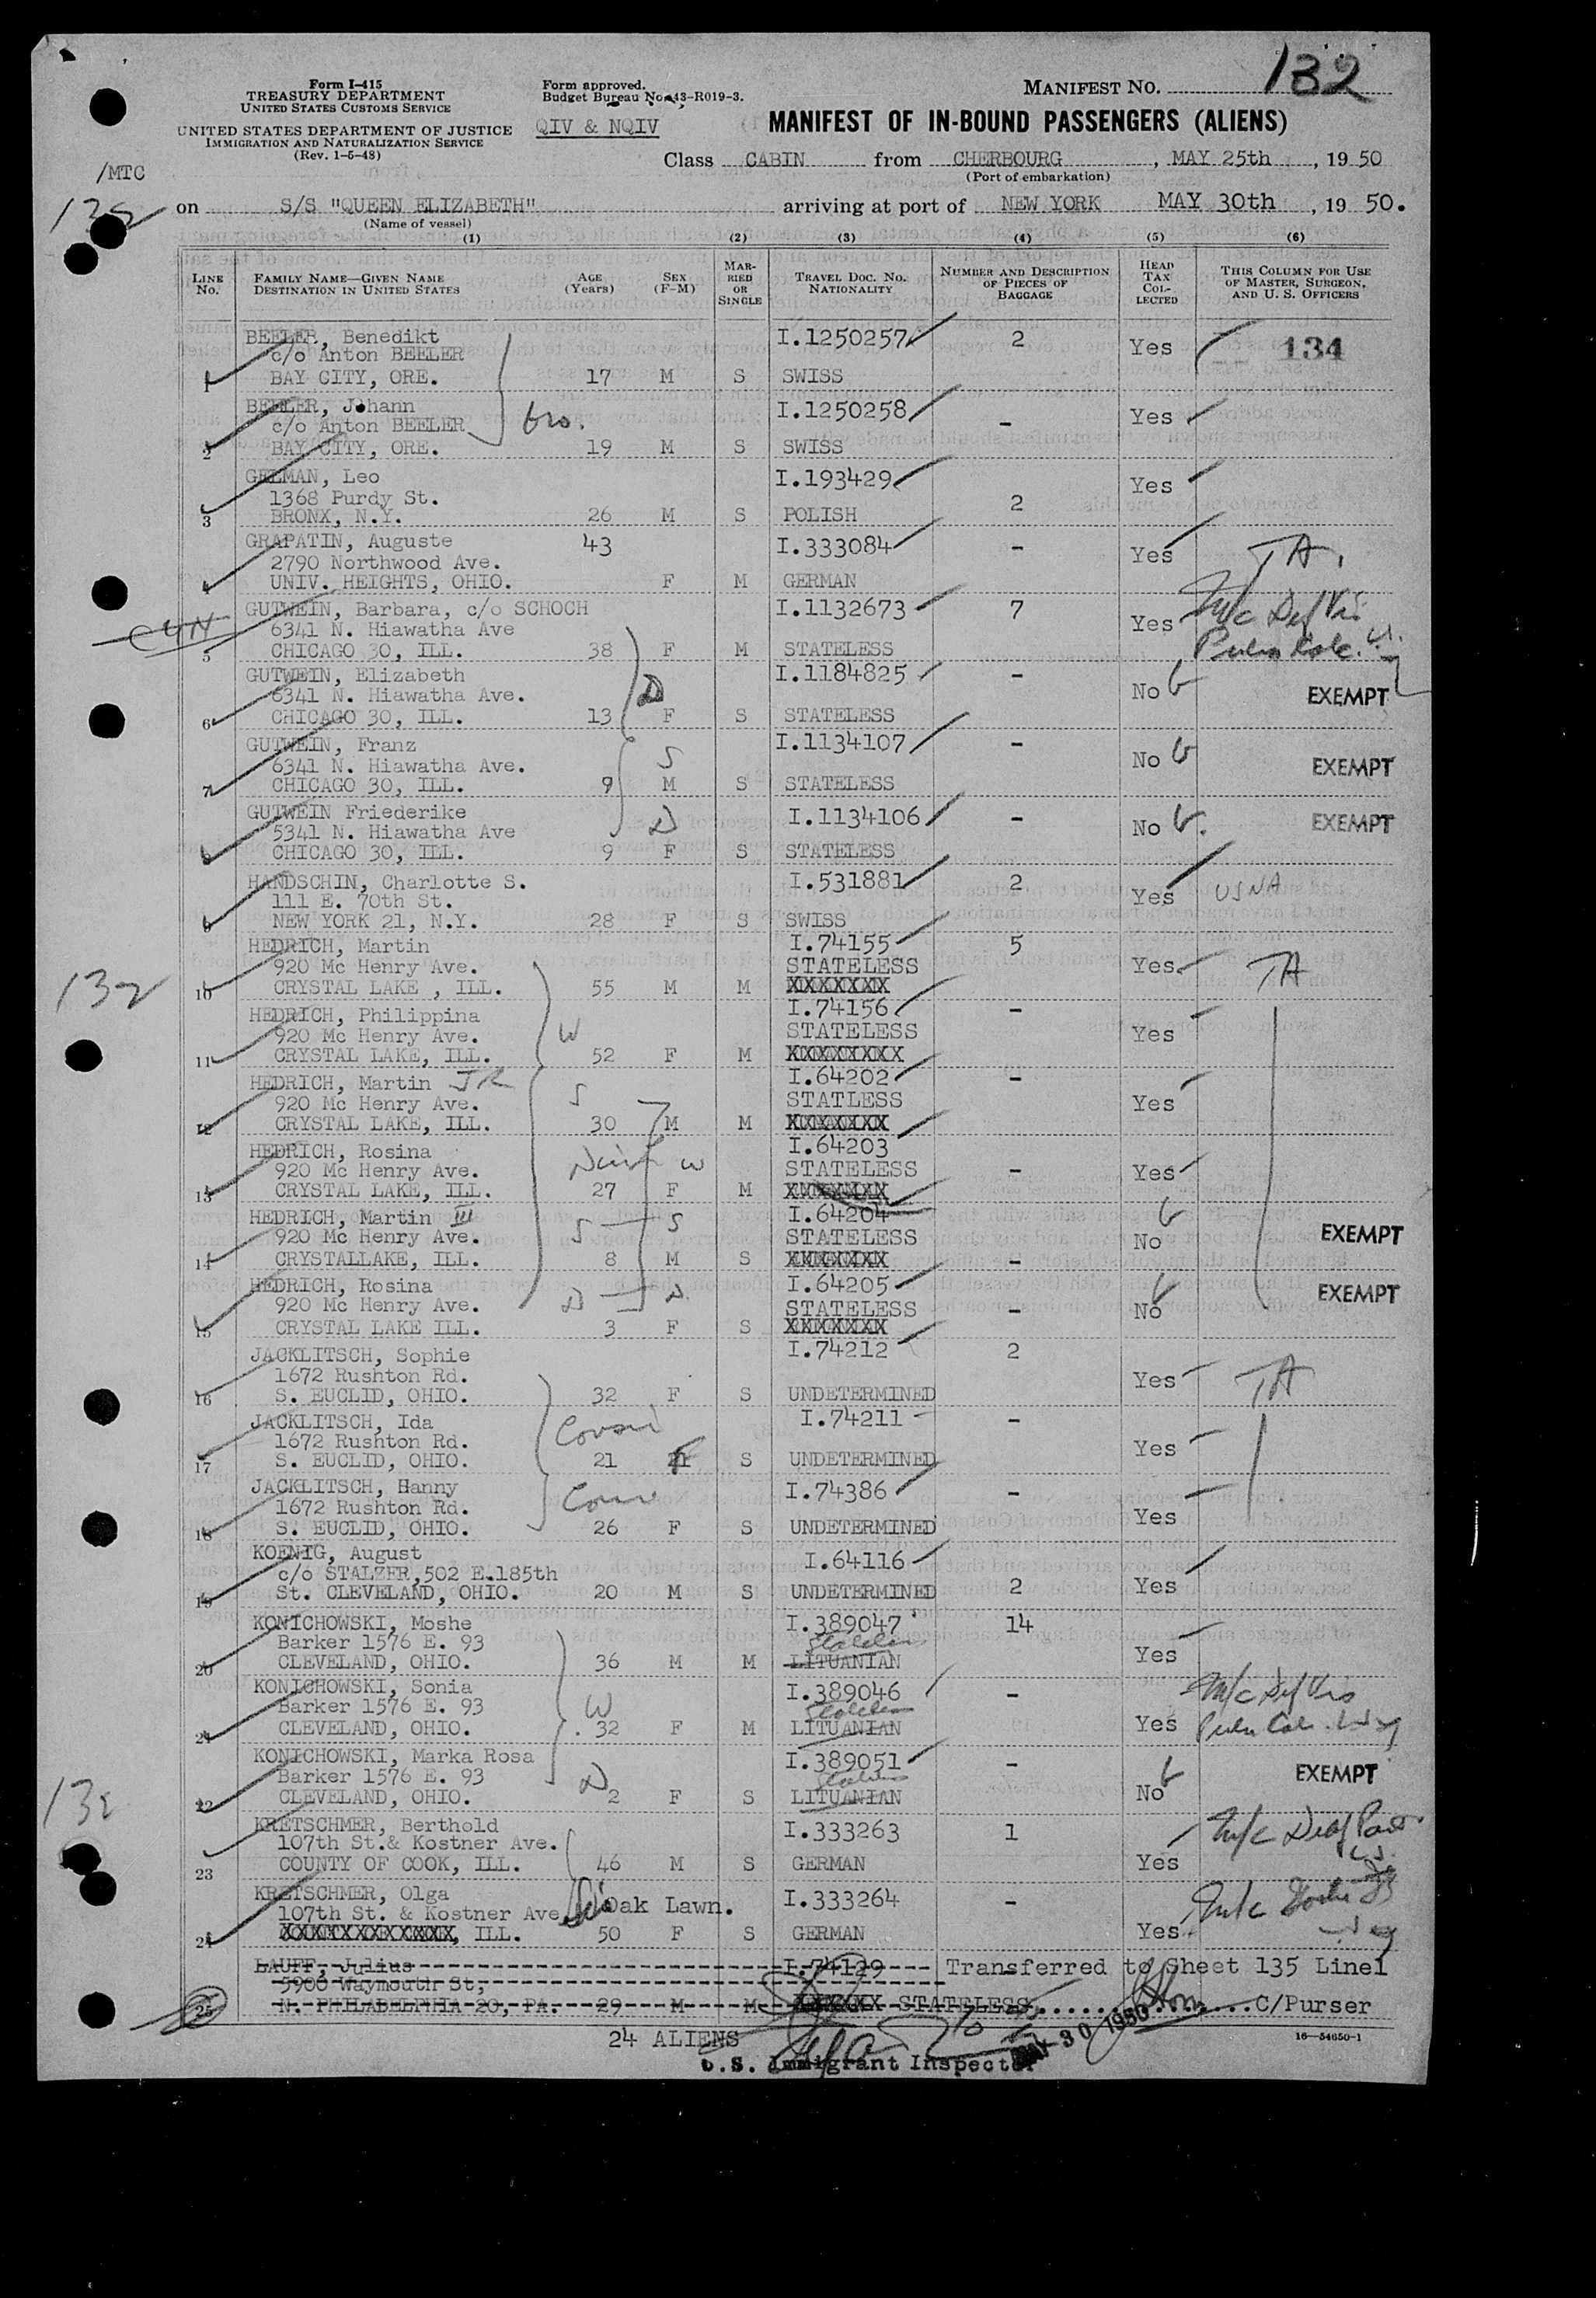 Form I-415
TREASURY DEPARTMENT
UNITED STATES CUSTOMS SERVICE
UNITED STATES DEPARTMENT OF JUSTICE
IMMIGRATION AND NATURALIZATION SERVICE
(Rev. 1-5-48)
Form approved.
Budget Bureau No. 43-R019-3.
QIV & NQIV
MANIFEST NO. 132
MANIFEST OF IN-BOUND PASSENGERS (ALIENS)
/MTC
Class CABIN from CHERBOURG, MAY 25th, 19 50
(Port of embarkation)
132
on S/S "QUEEN ELIZABETH" arriving at port of NEW YORK MAY 30th, 19 50.
(Name of vessel)
(1) (2) (3) (4) (5) (6)
LINE No. FAMILY NAME—GIVEN NAME DESTINATION IN UNITED STATES AGE (Years) SEX (F-M) MARRIED OR SINGLE TRAVEL DOC. NO. NATIONALITY NUMBER AND DESCRIPTION OF PIECES OF BAGGAGE HEAD TAX COLLECTED THIS COLUMN FOR USE OF MASTER, SURGEON, AND U. S. OFFICERS
BEELER, Benedikt I.1250257 2 Yes 134
c/o Anton BEELER
1 BAY CITY, ORE. 17 M S SWISS
BEELER, Johann I.1250258 - Yes
c/o Anton BEELER bro.
2 BAY CITY, ORE. 19 M S SWISS
GELMAN, Leo I.193429 2 Yes
1368 Purdy St.
3 BRONX, N.Y. 26 M S POLISH
GRAPATIN, Auguste 43 I.333084 - Yes TA.
2790 Northwood Ave.
4 UNIV. HEIGHTS, OHIO. F M GERMAN
GUTWEIN, Barbara, c/o SCHOCH I.1132673 7 Yes
6341 N. Hiawatha Ave
5 CHICAGO 30, ILL. 38 F M STATELESS
GUTWEIN, Elizabeth I.1184825 - No
6341 N. Hiawatha Ave. D EXEMPT
6 CHICAGO 30, ILL. 13 F S STATELESS
GUTWEIN, Franz I.1134107 - No
6341 N. Hiawatha Ave. S EXEMPT
7 CHICAGO 30, ILL. 9 M S STATELESS
GUTWEIN Friederike I.1134106 - No EXEMPT
5341 N. Hiawatha Ave D
8 CHICAGO 30, ILL. 9 F S STATELESS
HANDSCHIN, Charlotte S. I.531881 2 Yes USNA
111 E. 70th St.
9 NEW YORK 21, N.Y. 28 F S SWISS
HEDRICH, Martin I.74155 5
132 920 Mc Henry Ave. STATELESS Yes TA
10 CRYSTAL LAKE , ILL. 55 M M XXXXXXX
HEDRICH, Philippina I.74156 -
920 Mc Henry Ave. W STATELESS Yes
11 CRYSTAL LAKE, ILL. 52 F M XXXXXXXX
HEDRICH, Martin JR I.64202 -
920 Mc Henry Ave. S STATLESS Yes
12 CRYSTAL LAKE, ILL. 30 M M XXXXXXX
HEDRICH, Rosina I.64203
920 Mc Henry Ave. W STATELESS - Yes
13 CRYSTAL LAKE, ILL. 27 F M XXXXXXX
HEDRICH, Martin III I.64204
920 Mc Henry Ave. S S STATELESS No EXEMPT
14 CRYSTALLAKE, ILL. 8 M S XXXXXXX -
HEDRICH, Rosina I.64205 EXEMPT
920 Mc Henry Ave. D D STATELESS - No
15 CRYSTAL LAKE ILL. 3 F S XXXXXXX
JACKLITSCH, Sophie I.74212 2
1672 Rushton Rd. Yes TA
16 S. EUCLID, OHIO. 32 F S UNDETERMINED
JACKLITSCH, Ida I.74211 -
1672 Rushton Rd. Cousin Yes
17 S. EUCLID, OHIO. 21 F S UNDETERMINED
JACKLITSCH, Hanny I.74386 -
1672 Rushton Rd. Yes
18 S. EUCLID, OHIO. 26 F S UNDETERMINED
KOENIG, August I.64116
c/o STALZER,502 E.185th
19 St. CLEVELAND, OHIO. 20 M S UNDETERMINED 2 Yes
KONICHOWSKI, Moshe I.389047 14
Barker 1576 E. 93 Stateless Yes
20 CLEVELAND, OHIO. 36 M M LITUANIAN
KONICHOWSKI, Sonia I.389046 -
Barker 1576 E. 93 W Stateless
21 CLEVELAND, OHIO. 32 F M LITUANIAN Yes
KONICHOWSKI, Marka Rosa I.389051 - EXEMPT
Barker 1576 E. 93 D Stateless No
132
22 CLEVELAND, OHIO. 2 F S LITUANIAN
KRETSCHMER, Berthold I.333263 1
107th St.& Kostner Ave.
23 COUNTY OF COOK, ILL. 46 M S GERMAN Yes
KRETSCHMER, Olga I.333264 -
107th St. & Kostner Ave Oak Lawn.
24 XXXXXXXXXXXXXX, ILL. 50 F S GERMAN Yes
LAUFF, Julius I.74129 Transferred to Sheet 135 Line1
5906 Waymouth St,
25 N. PHILADELPHIA 20, PA. 29 M M XXXXXX STATELESS ..........C/Purser
24 ALIENS MAY 30 1950 16—54650-1
U.S. Immigrant Inspector